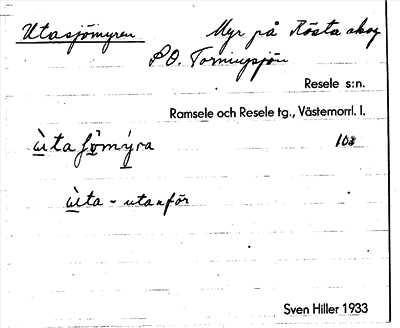 Utasjömyren Myr på Rösta skog
S.O. Torningsjön
Resele s:n.
Ramsele och Resele tg., Västernorrl. l.
ùtaʃömýra 108
ùta - utanför
Sven Hiller 1933